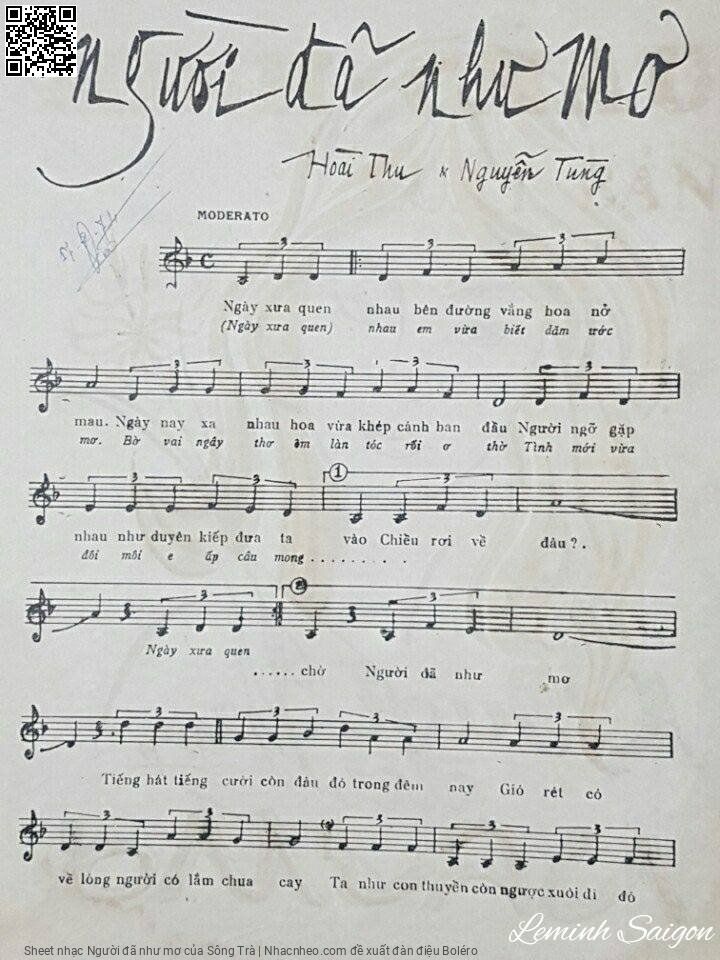 Người đã như mơ
Hoài Thu × Nguyễn Tùng
MODERATO
3 3 3
Ngày xưa quen nhau bên đường vắng hoa nở
(Ngày xưa quen) nhau em vừa biết dăm ước
3 3 3 3
mau. Ngày nay xa nhau hoa vừa khép cánh ban đầu Người ngỡ gặp
mơ. Bờ vai ngây thơ êm làn tóc rối ơ thờ Tình mới vừa
3 3 1 3
nhau như duyên kiếp đưa ta vào Chiều rơi về đâu?.
đôi môi e ấp câu mong.........
3 2 3
Ngày xưa quen
......chờ Người đã như mơ
3 3 3 3
Tiếng hát tiếng cười còn đâu đó trong đêm nay Gió rét có
3 3 3 3 3
về lòng người có lắm chua cay Ta như con thuyền còn ngược xuôi đi đó
Leminh Saigon
Sheet nhạc Người đã như mơ của Sông Trà | Nhacnheo.com đề xuất đàn điệu Boléro